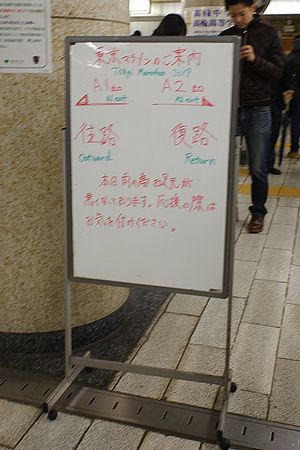 東京マラソンのご案内
Tokyo Marathon 2017
A1出口 A2出口
A1 exit A2 exit
往路 復路
Outward Return
本日雨の為、足元が
悪くなっております。応援の際は
お気を付けください。